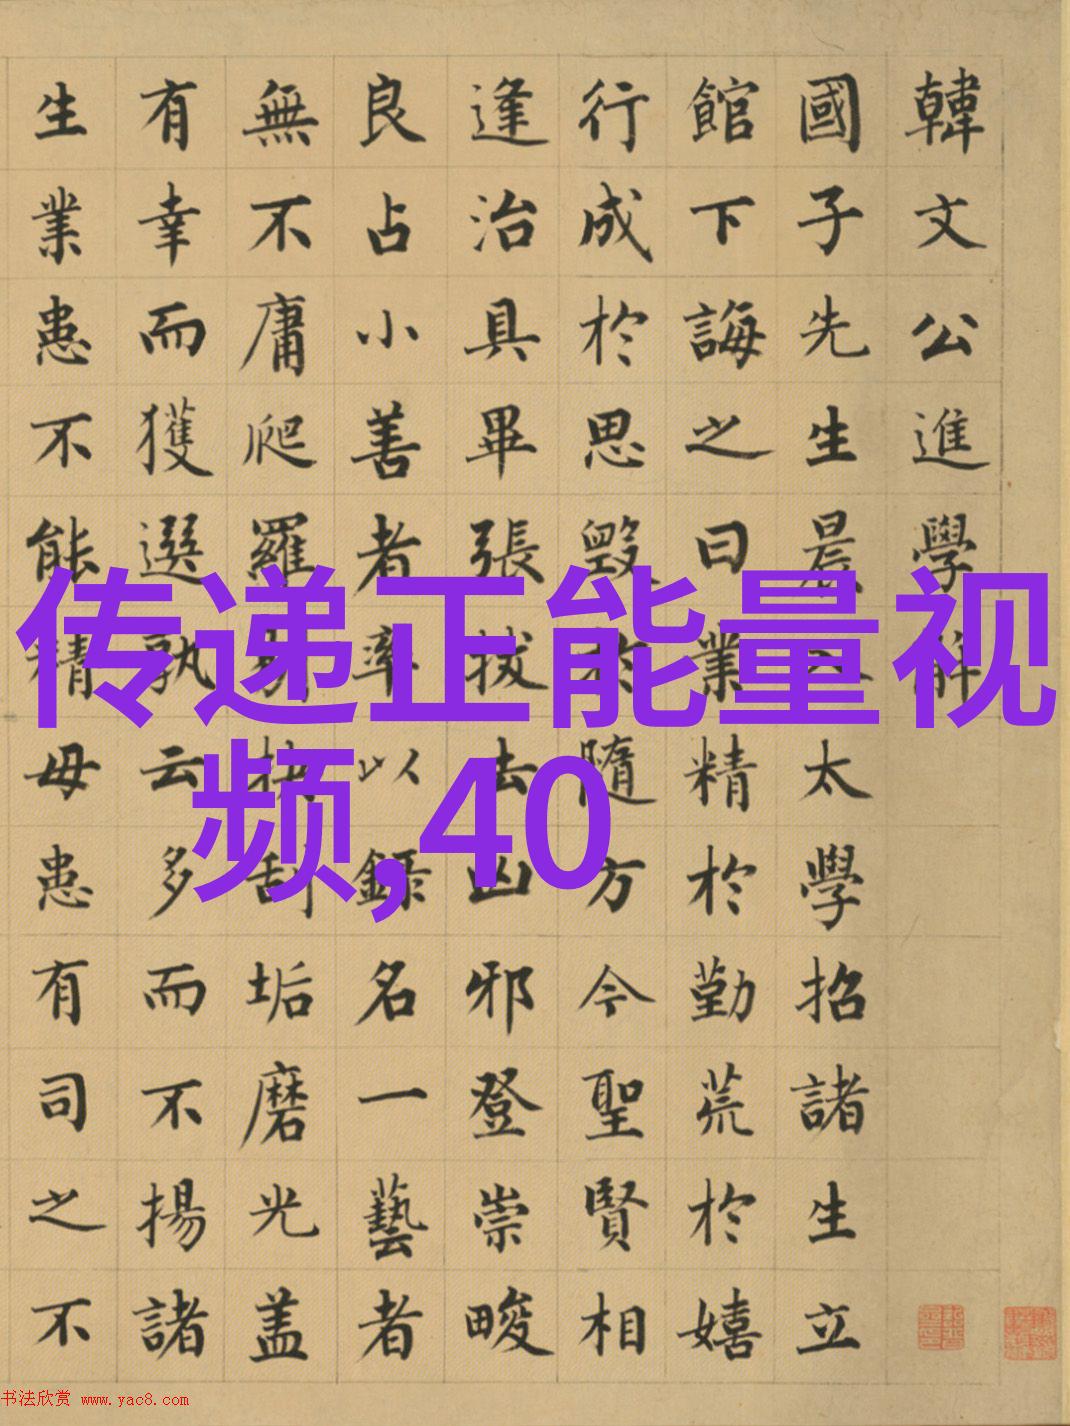 韓文公進學解
國子先生晨入太學招諸生立
館下誨之曰業精於勤荒於嬉
行成於思毀於隨方今聖賢相
逢治具畢張拔去凶邪登崇畯
良占小善者率以錄名一藝者
無不庸爬羅剔抉刮垢磨光盖
有幸而獲選孰云多而不揚諸
生業患不能精毋患有司之不
传递正能量视
频,40
书法欣赏 www.yac8.com